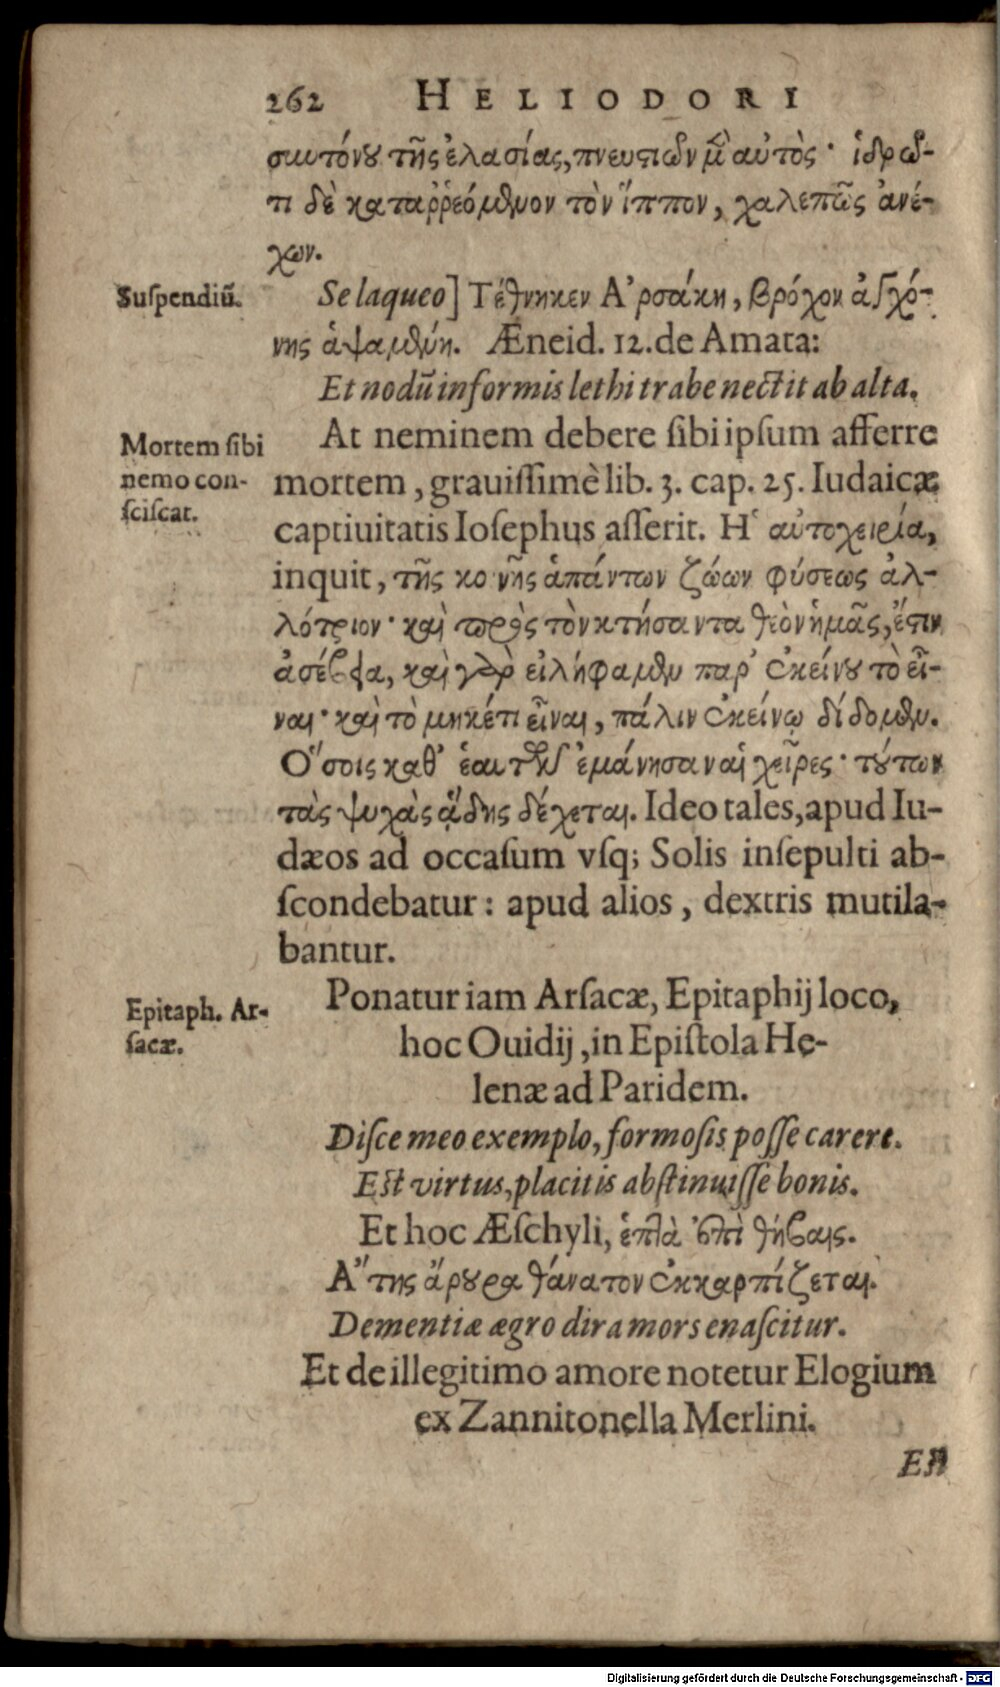 262 HELIODORI
συντόνου τῆς ἐλασίας, πνευστιῶν μὲν αὐτὸς· ἱδρῶ-
τι δὲ καταῤῥεόμενον τὸν ἵππον, χαλεπῶς ἀνέ-
χων.
Suſpendiū.
Se laqueo] Τέθνηκεν Ἀρσάκη, βρόχον ἀγχό-
νης ἁψαμένη. Æneid. 12. de Amata:
Et nodū informis lethi trabe nectit ab alta.
Mortem ſibi
nemo con-
ſciſcat.
At neminem debere ſibi ipſum afferre
mortem, grauiſſimè lib. 3. cap. 25. Iudaicæ
captiuitatis Ioſephus aſſerit. Ἡ αὐτοχειρία,
inquit, τῆς κοινῆς ἁπάντων ζώων φύσεως ἀλ-
λότριον· καὶ πρὸς τὸν κτήσαντα θεὸν ἡμᾶς, ἔστιν
ἀσέβεια, καὶ γὰρ εἰλήφαμεν παρ' ἐκείνου τὸ εἶ-
ναι· καὶ τὸ μηκέτι εἶναι, πάλιν ἐκείνῳ δίδομεν.
Ὅσοις καθ' ἑαυτῶν ἐμάνησαν αἱ χεῖρες· τούτων
τὰς ψυχὰς ᾅδης δέχεται. Ideo tales, apud Iu-
dæos ad occaſum vſq; Solis inſepulti ab-
ſcondebatur: apud alios, dextris mutila-
bantur.
Epitaph. Ar-
ſacæ.
Ponatur iam Arſacæ, Epitaphij loco,
hoc Ouidij, in Epiſtola He-
lenæ ad Paridem.
Diſce meo exemplo, formoſis poſſe carere.
Eſt virtus, placitis abſtinuiſſe bonis.
Et hoc Æſchyli, ἑπτὰ ἐπὶ θήβαις.
Ἄτης ἄρουρα θάνατον ἐκκαρπίζεται.
Dementiæ ægro dira mors enaſcitur.
Et de illegitimo amore notetur Elogium
ex Zannitonella Merlini.
EN
Digitalisierung gefördert durch die Deutsche Forschungsgemeinschaft - DFG